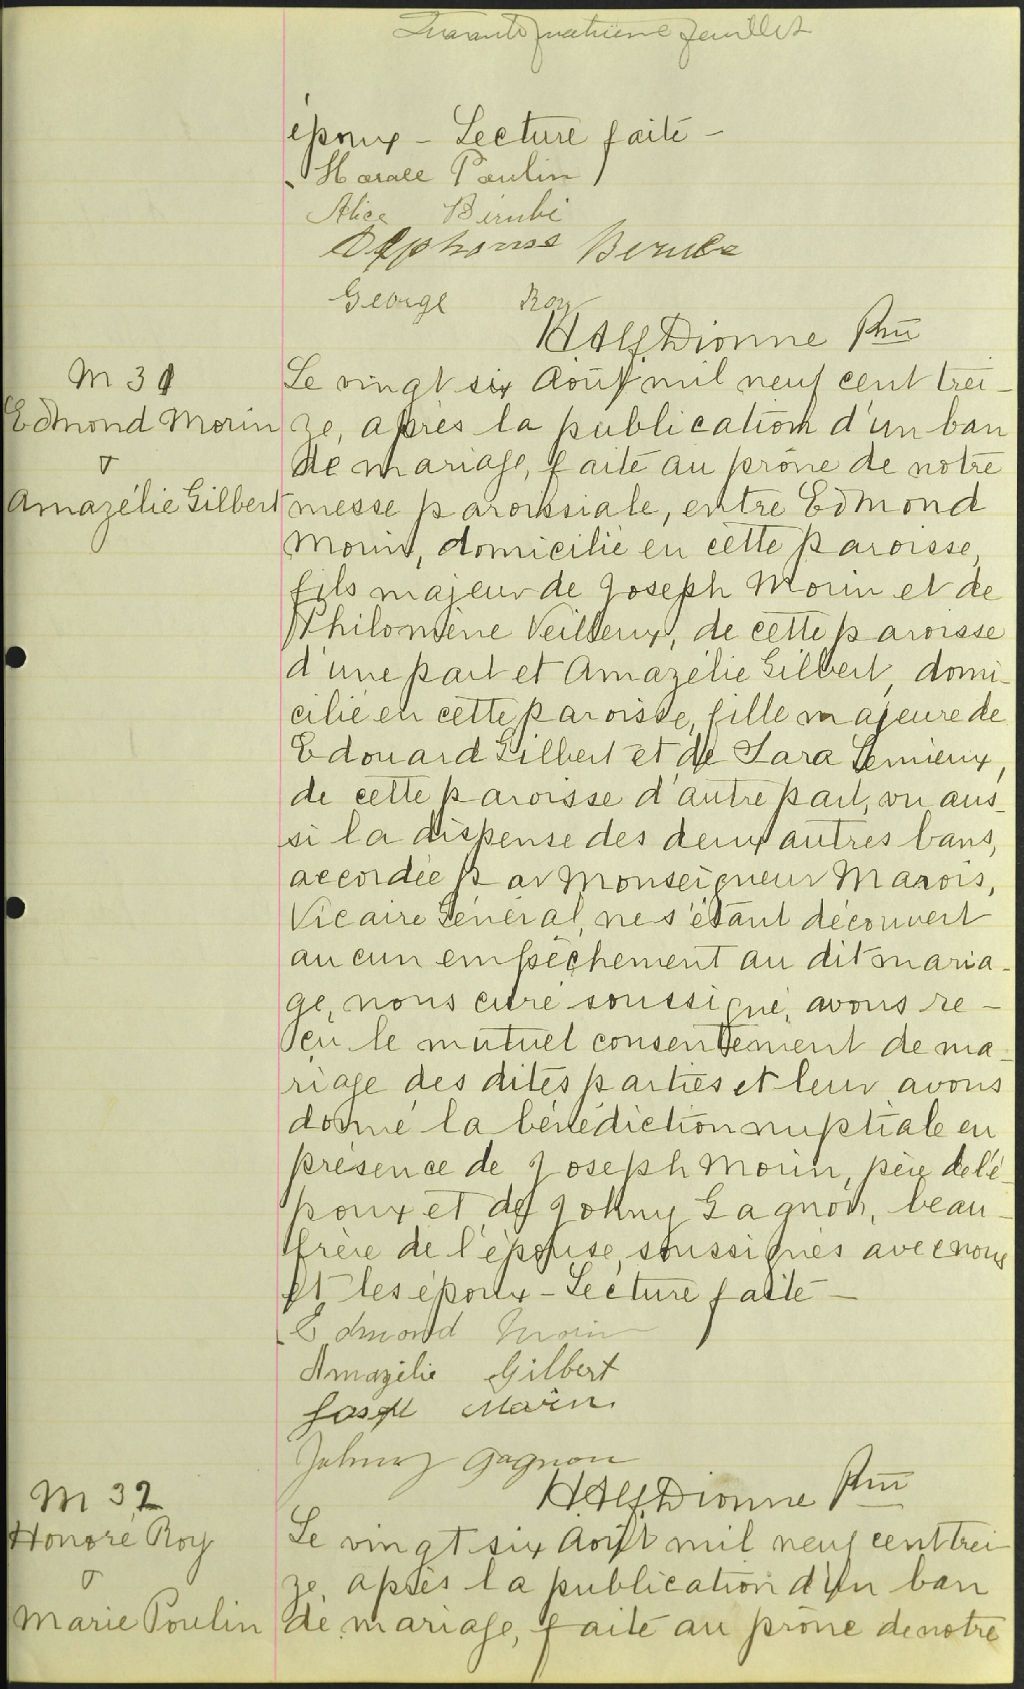 Quarante quatrième feuillet
époux - Lecture faite -
Horace Poulin
Alice Bérubé
Alphonse Berube
George Roy
H Alf. Dionne Ptre
M 31
Edmond Morin
&
Amazélie Gilbert
Le vingt six Août mil neuf cent trei-
ze, après la publication d'un ban
de mariage, faite au prône de notre
messe paroissiale, entre Edmond
Morin, domicilié en cette paroisse,
fils majeur de Joseph Morin et de
Philomène Veilleux, de cette paroisse
d'une part et Amazélie Gilbert, domi-
cilié en cette paroisse, fille majeure de
Edouard Gilbert et de Sara Lemieux,
de cette paroisse d'autre part, vu aus-
si la dispense des deux autres bans,
accordée par Monseigneur Marois,
Vicaire Général, ne s'étant découvert
aucun empêchement au dit maria-
ge, nous curé soussigné, avons re-
çu le mutuel consentement de ma-
riage des dites parties et leur avons
donné la bénédiction nuptiale en
présence de Joseph Morin, père de l'é-
poux et de Johny Gagnon, beau-
frère de l'épouse, soussignés avec nous
et les époux - Lecture faite -
Edmond Morin
Amazélie Gilbert
Joseph Morin
Johnny Gagnon
H Alf. Dionne Ptre
M 32
Honoré Roy
&
Marie Poulin
Le vingt six Août mil neuf cent trei-
ze, après la publication d'un ban
de mariage, faite au prône de notre